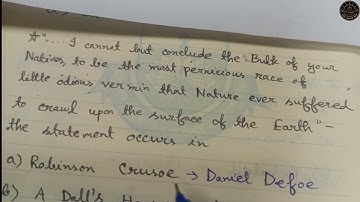 *"....I cannot but conclude the Bulk of your
Natives, to be the most pernicious race of
little odious vermin that Nature ever suffered
to crawl upon the surface of the Earth" -
the statement occurs in
a) Robinson Crusoe → Daniel Defoe
b) A Doll's